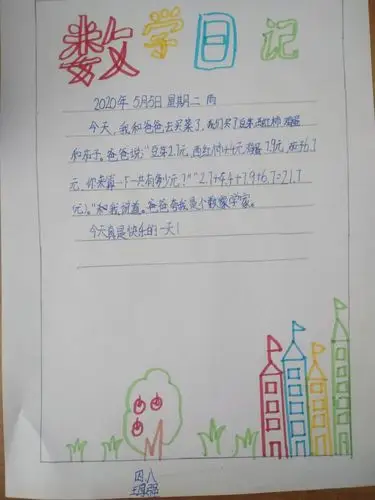 数学日记
2020年 5月5日 星期二 雨
今天,我和爸爸去买菜了,我们买了豆芽、西红柿、鸡蛋
和茄子。爸爸说:“豆芽2.7元,西红柿4.4元,鸡蛋7.9元,茄子6.7
元,你来算一下一共有多少元?”“2.7+4.4+7.9+6.7=21.7
(元)。”我说道。爸爸夸我是个数学家。
今天真是快乐的一天!
四八